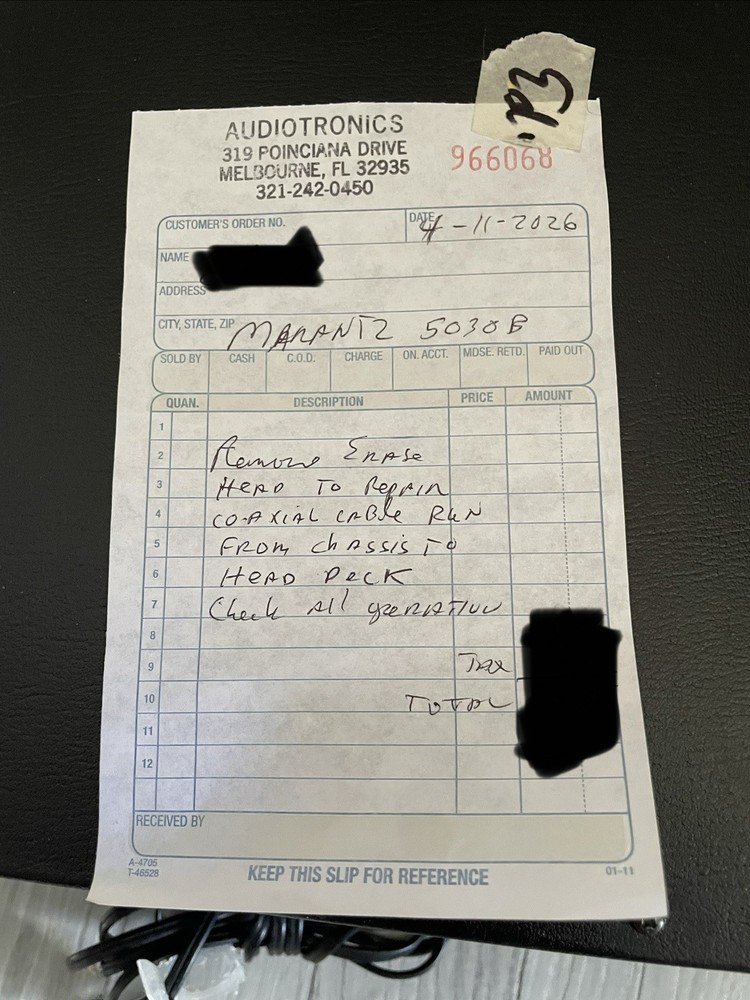 Ed.
AUDIOTRONICS
319 POINCIANA DRIVE
MELBOURNE, FL 32935
321-242-0450
966068
CUSTOMER'S ORDER NO.
DATE 4-11-2026
NAME
ADDRESS
CITY, STATE, ZIP MARANTZ 5030B
SOLD BY CASH C.O.D. CHARGE ON. ACCT. MDSE. RETD. PAID OUT
QUAN. DESCRIPTION PRICE AMOUNT
1
2 Remove Erase
3 HEAD TO REPAIR
4 CO-AXIAL CABLE RUN
5 FROM CHASSIS TO
6 HEAD DECK
7 Check All operation
8
9 TAX
10 TOTAL
11
12
RECEIVED BY
A-4705
T-46528
KEEP THIS SLIP FOR REFERENCE
01-11